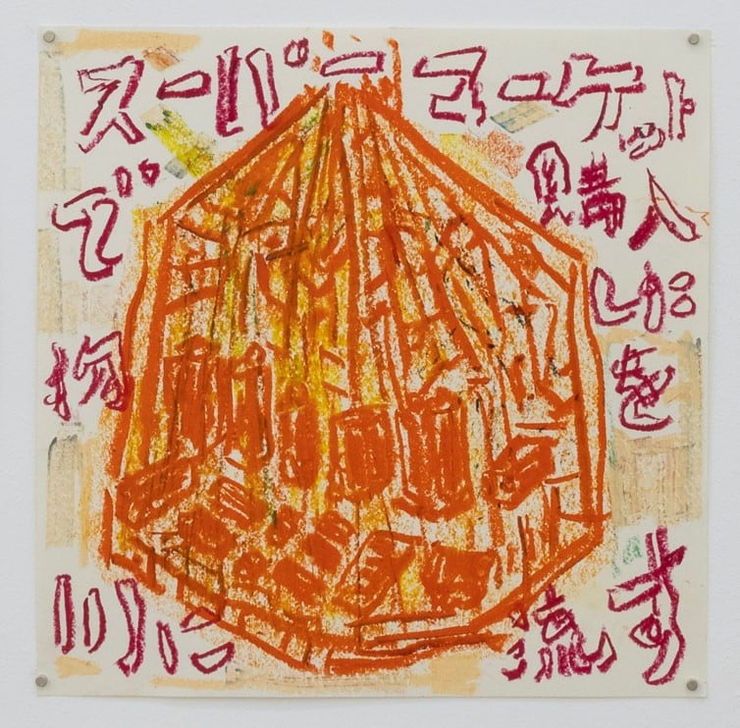 スーパーマーケット
で 購入
した
物 を
川に 流す